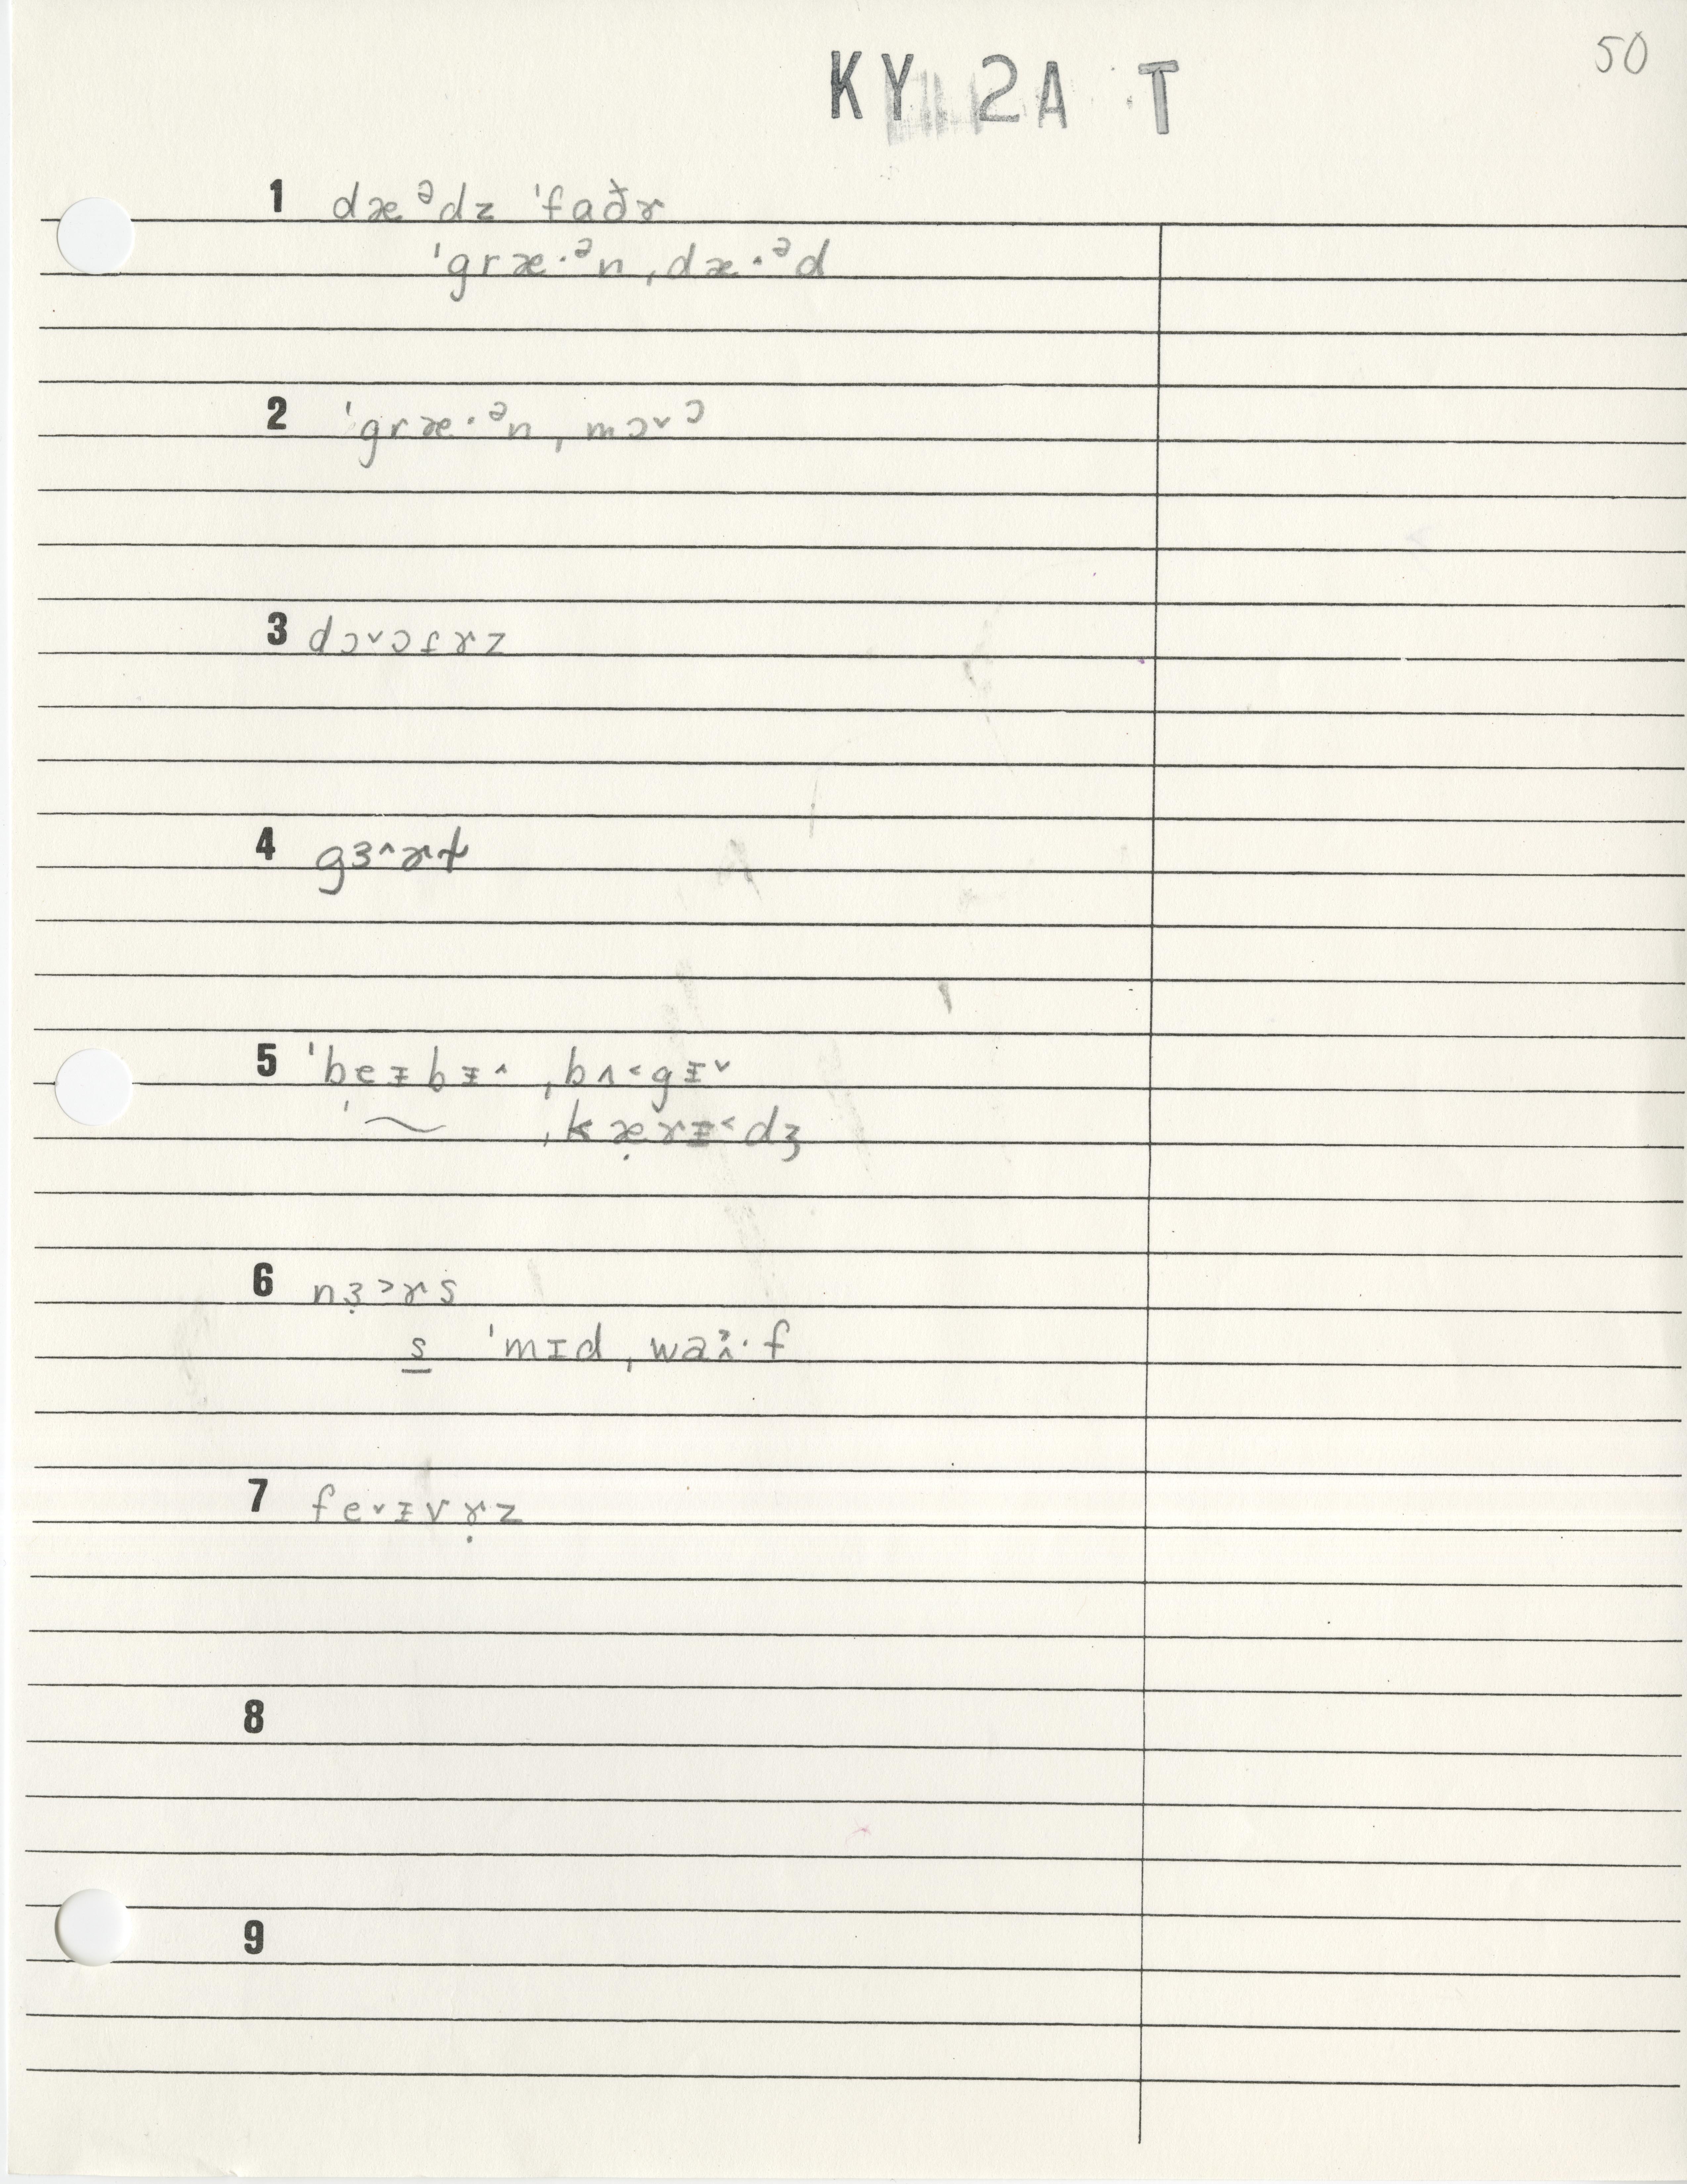 50
KY 2A T
1 dæᵊdz ˈfaðɤ
ˈgræ·ᵊn ˌdæ·ᵊd
2 ˈgræ·ᵊn ˌmɔ˅ᵓ
3 dɔ˅ɔfɤz
4 gɜ^ɚɫ
5 ˈbeᵻbᵻ^ ˌbʌ˂gᵻ˅
ˈ~ ˌkæ̣rᵻ˂dʒ
6 nɜ̣˃ɤs
s̲ ˈmɪd ˌwaɪ·f
7 fe˅ᵻvɤ̣z
8
9